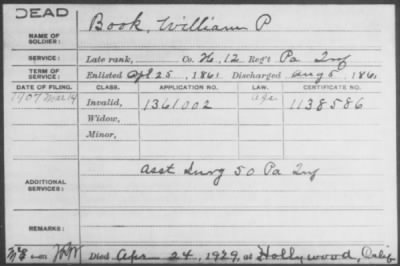 DEAD
NAME OF SOLDIER: Book, William P
SERVICE: Late rank, Co. H, 12 Reg't Pa Inf
TERM OF SERVICE: Enlisted Apl 25, 1861 Discharged Aug 5, 186
DATE OF FILING. CLASS. APPLICATION NO. LAW. CERTIFICATE NO.
1907 Mar 14 Invalid, 1361002 age 1138586
Widow,
Minor,
ADDITIONAL SERVICES: Asst Surg 50 Pa Inf
REMARKS:
Died Apr 24, 1929, at Hollywood, Calif